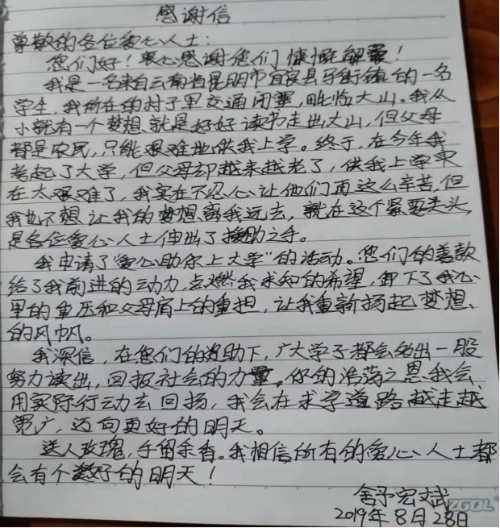 感谢信
尊敬的各位爱心人士:
您们好!衷心感谢您们慷慨解囊!
我是一名来自云南省昆明市宜良县 街镇的一名
学生,我所在的村子里交通闭塞,毗临大山。我从
小就有一个梦想就是好好读书走出大山,但父母
都是农民,只能艰难地供我上学。终于,在今年我
考起了大学,但父母却越来越老了,供我上学实
在太艰难了,我实在不忍心让他们再这么辛苦,但
我也不想让我的梦想离我远去,就在这个紧要关头,
是各位爱心人士伸出了援助之手。
我申请了“爱心助你上大学”的活动。您们的善款
给了我前进的动力,点燃我求知的希望,卸下了我心
里的重压和父母肩上的重担,让我重新扬起梦想
的风帆。
我深信,在您们的资助下,广大学子都会 出一股
努力读出,回报社会的力量。你的浩荡之恩我会
用实际行动去回扬,我会在求学道路越走越
宽广,迈向更好的明天。
送人玫瑰,手留余香。我相信所有的爱心人士都
会有个美好的明天!
舍予宏斌
2019年8月28日
ZGOL